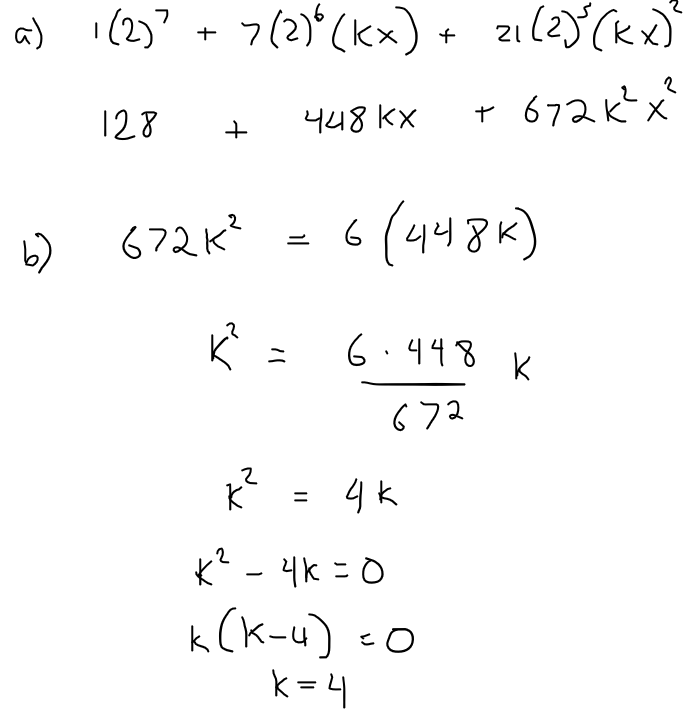 a) 1(2)⁷ + 7(2)⁶(kx) + 21(2)⁵(kx)²
128 + 448kx + 672k²x²
b) 672k² = 6(448k)
k² = 6 · 448 / 672 k
k² = 4k
k² - 4k = 0
k(k-4) = 0
k = 4